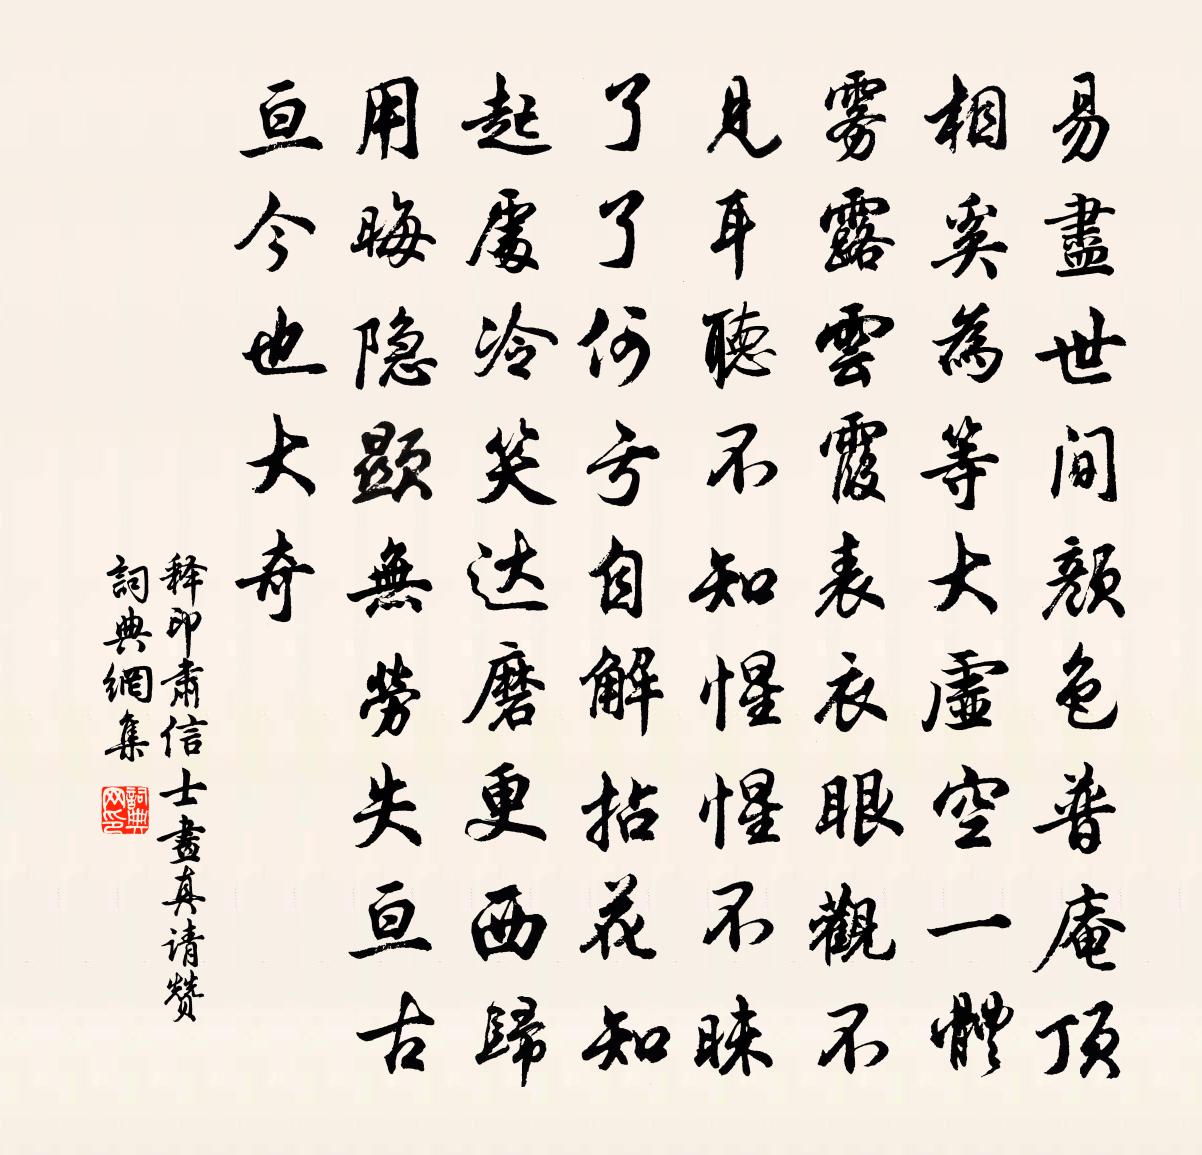 易盡世间颜色普庵顶
相奚為等大虛空一體
雾露雲霞表衣眼觀不
見耳聽不知惺惺不昧
了了何亏自解拈花知
起處冷笑达磨更西歸
用晦隐顯無勞失亘古
亘今也大奇
释印肃信士畫真请赞
詞典網集
詞典网印